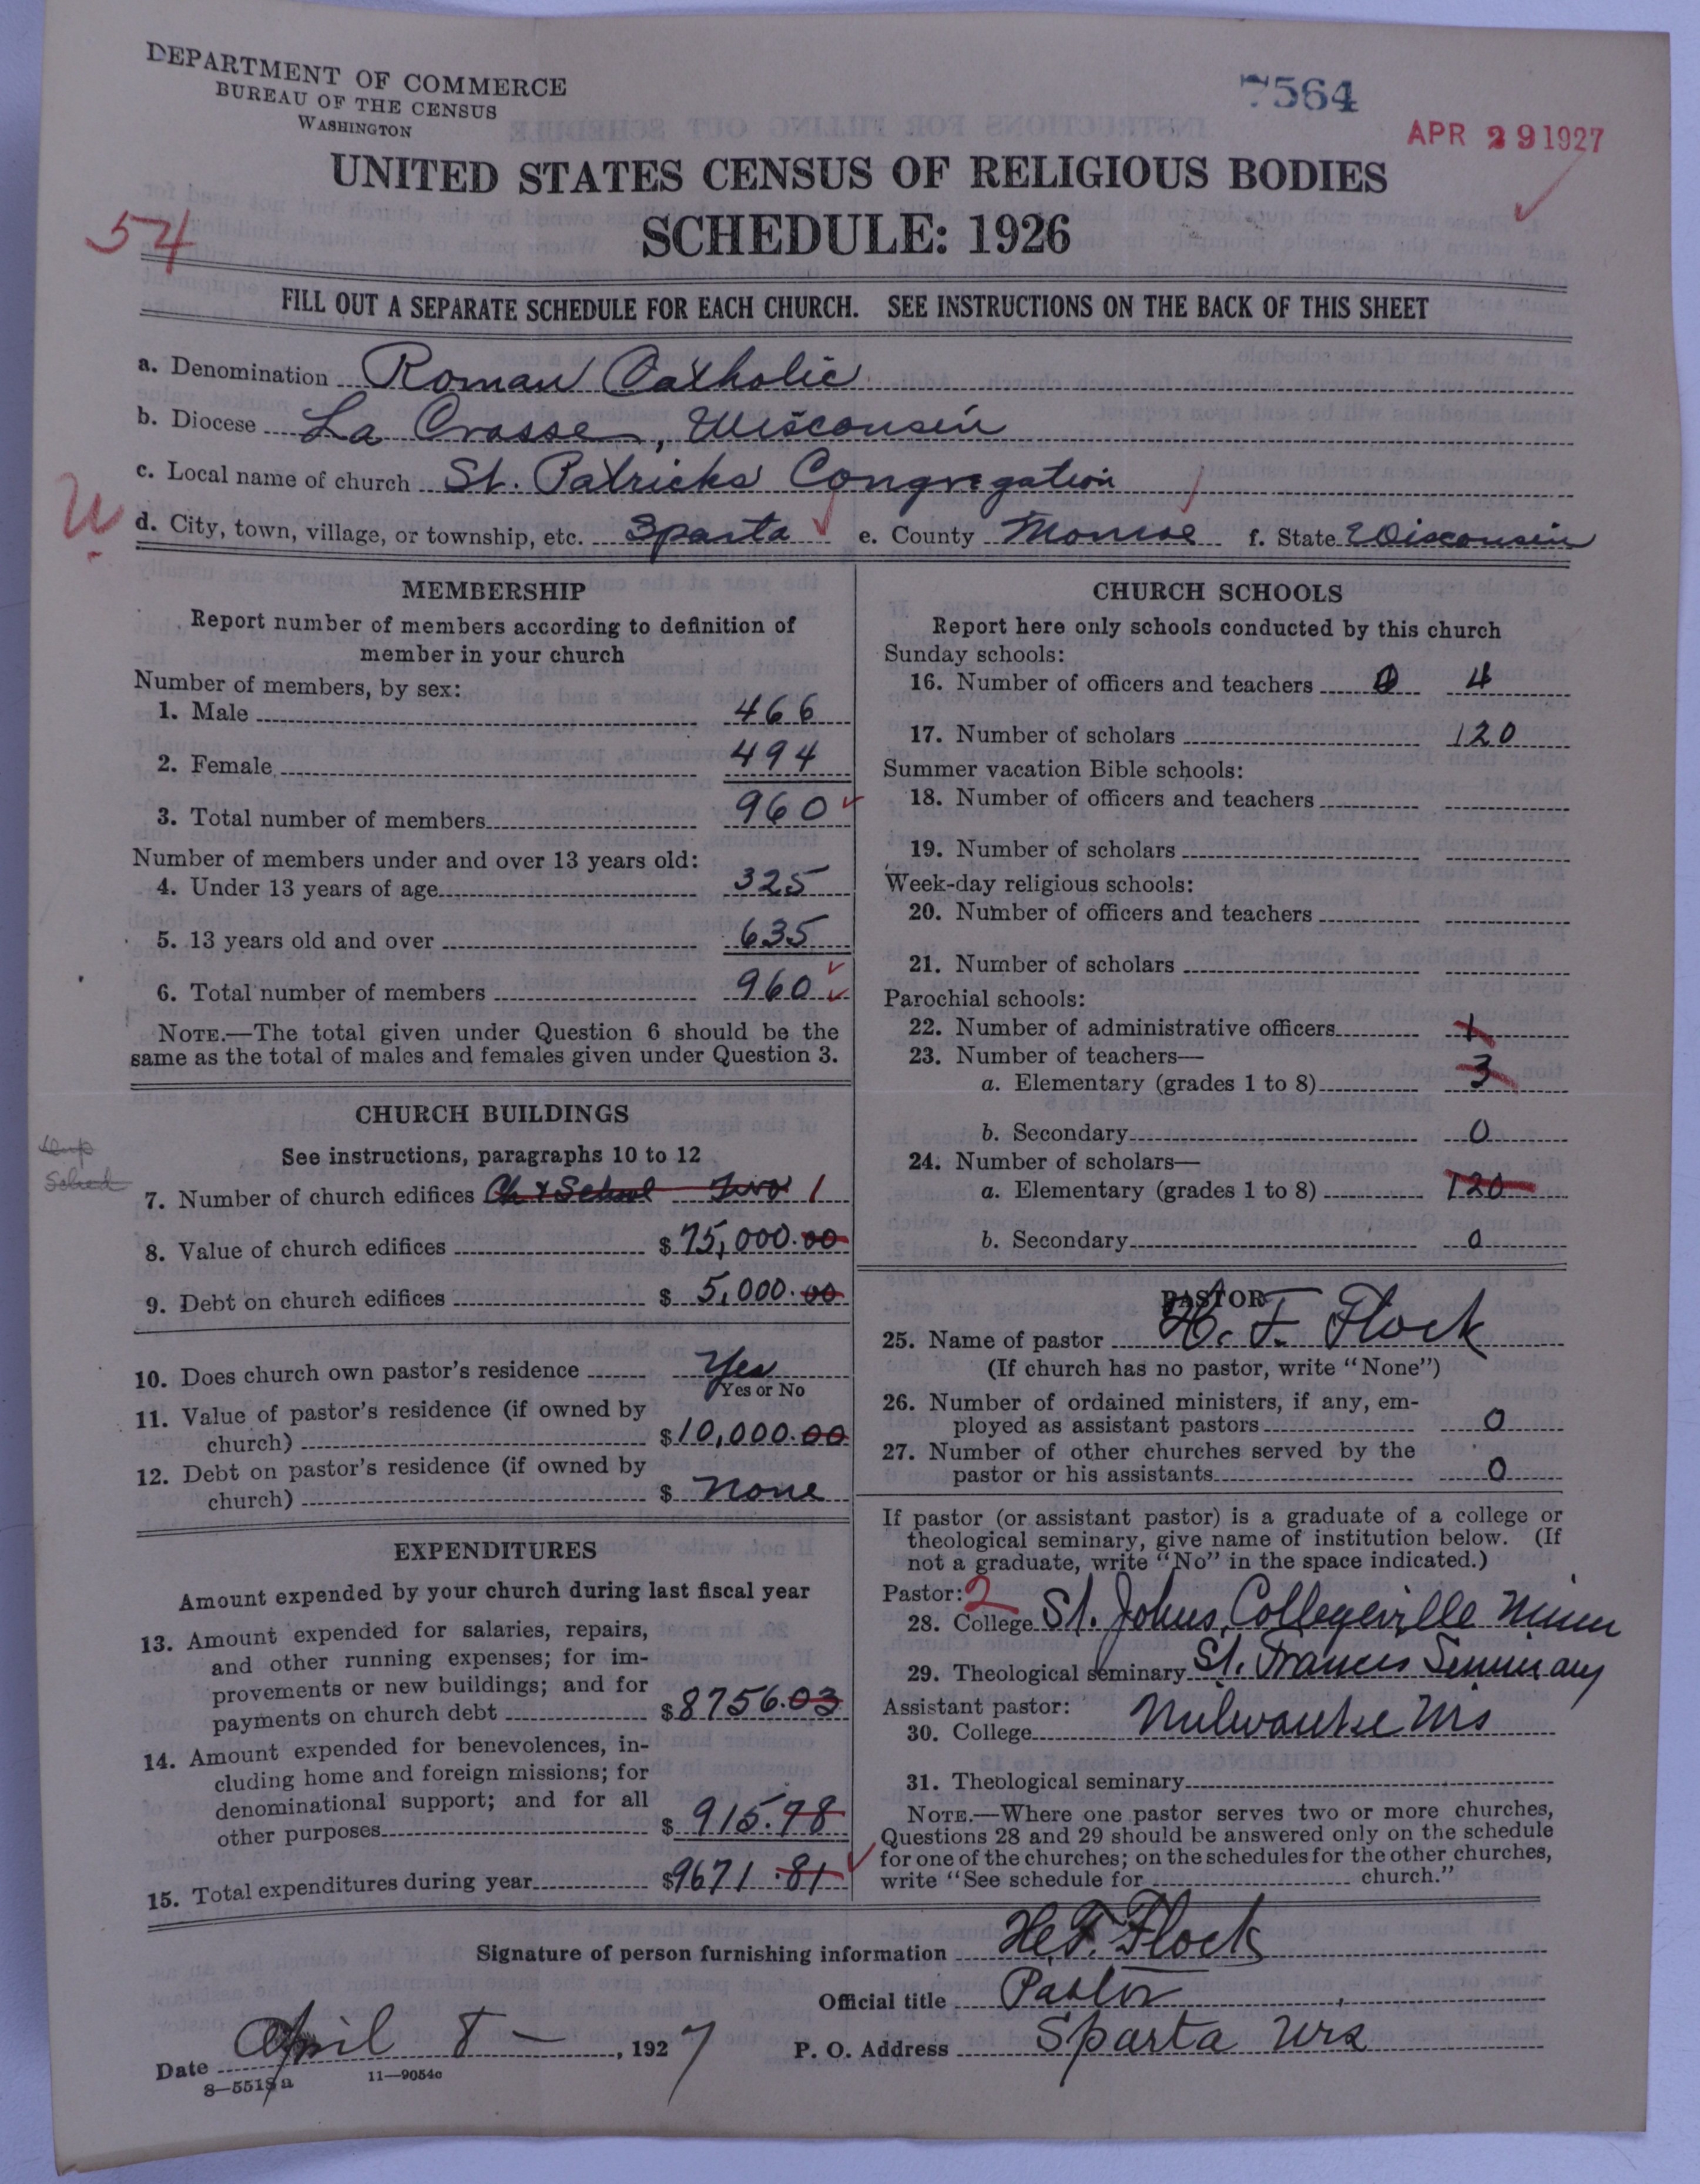 DEPARTMENT OF COMMERCE
BUREAU OF THE CENSUS
WASHINGTON
7564
APR 29 1927
UNITED STATES CENSUS OF RELIGIOUS BODIES
SCHEDULE: 1926
54
FILL OUT A SEPARATE SCHEDULE FOR EACH CHURCH. SEE INSTRUCTIONS ON THE BACK OF THIS SHEET
a. Denomination Roman Catholic
b. Diocese La Crosse, Wisconsin
c. Local name of church St. Patricks Congregation
d. City, town, village, or township, etc. Sparta e. County Monroe f. State Wisconsin
MEMBERSHIP
Report number of members according to definition of
member in your church
Number of members, by sex:
1. Male 466
2. Female 494
3. Total number of members 960
Number of members under and over 13 years old:
4. Under 13 years of age 325
5. 13 years old and over 635
6. Total number of members 960
NOTE.—The total given under Question 6 should be the
same as the total of males and females given under Question 3.
CHURCH BUILDINGS
See instructions, paragraphs 10 to 12
7. Number of church edifices Ch & School Two 1
8. Value of church edifices $75,000.00
9. Debt on church edifices $5,000.00
10. Does church own pastor's residence Yes
Yes or No
11. Value of pastor's residence (if owned by
church) $10,000.00
12. Debt on pastor's residence (if owned by
church) $ None
EXPENDITURES
Amount expended by your church during last fiscal year
13. Amount expended for salaries, repairs,
and other running expenses; for im-
provements or new buildings; and for
payments on church debt $8756.03
14. Amount expended for benevolences, in-
cluding home and foreign missions; for
denominational support; and for all
other purposes $915.78
15. Total expenditures during year $9671.81
CHURCH SCHOOLS
Report here only schools conducted by this church
Sunday schools:
16. Number of officers and teachers 4
17. Number of scholars 120
Summer vacation Bible schools:
18. Number of officers and teachers
19. Number of scholars
Week-day religious schools:
20. Number of officers and teachers
21. Number of scholars
Parochial schools:
22. Number of administrative officers 1
23. Number of teachers—
a. Elementary (grades 1 to 8) 3
b. Secondary 0
24. Number of scholars—
a. Elementary (grades 1 to 8) 120
b. Secondary 0
PASTOR
25. Name of pastor H. F. Flock
(If church has no pastor, write "None")
26. Number of ordained ministers, if any, em-
ployed as assistant pastors 0
27. Number of other churches served by the
pastor or his assistants 0
If pastor (or assistant pastor) is a graduate of a college or
theological seminary, give name of institution below. (If
not a graduate, write "No" in the space indicated.)
Pastor: 2
28. College St. Johns, Collegeville Minn
29. Theological seminary St. Francis Seminary
Assistant pastor: Milwaukee Wis
30. College
31. Theological seminary
NOTE.—Where one pastor serves two or more churches,
Questions 28 and 29 should be answered only on the schedule
for one of the churches; on the schedules for the other churches,
write "See schedule for church."
Signature of person furnishing information H. F. Flock
Official title Pastor
Date April 8 — , 1927 P. O. Address Sparta Wis
8—5518a 11—9054c